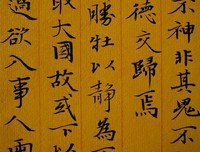 不神非其鬼不
德交歸焉
勝牡以静為
取大國故或下以
過欲入事人